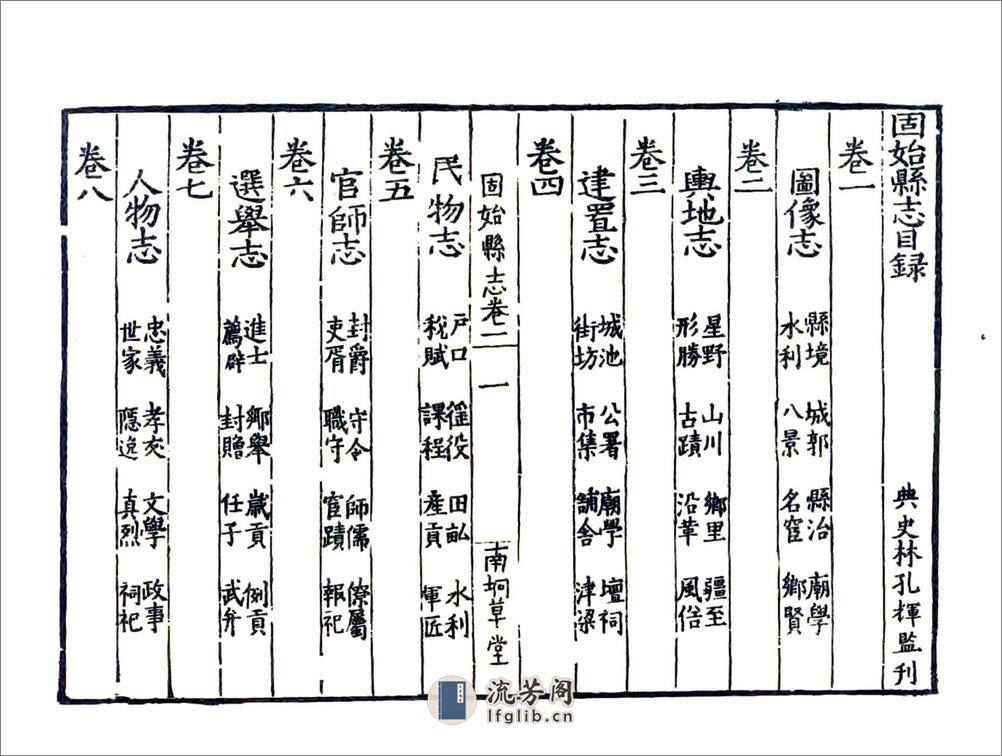 固始縣志目錄 典史林孔輝監刊
卷一
圖像志 縣境 城郭 縣治 廟學
水利 八景 名宦 鄉賢
卷二
輿地志 星野 山川 鄉里 疆至
形勝 古蹟 沿革 風俗
卷三
建置志 城池 公署 廟學 壇祠
街坊 市集 舖舍 津梁
卷四
固始縣志卷二 一 南坰草堂
民物志 戶口 徭役 田畝 水利
稅賦 課程 產貢 軍匠
卷五
官師志 封爵 守令 師儒 僚屬
吏胥 職守 宦蹟 報祀
卷六
選舉志 進士 鄉舉 歲貢 例貢
薦辟 封贈 任子 武弁
卷七
人物志 忠義 孝友 文學 政事
世家 隱逸 真烈 祠祀
卷八
流芳阁
lfglib.cn